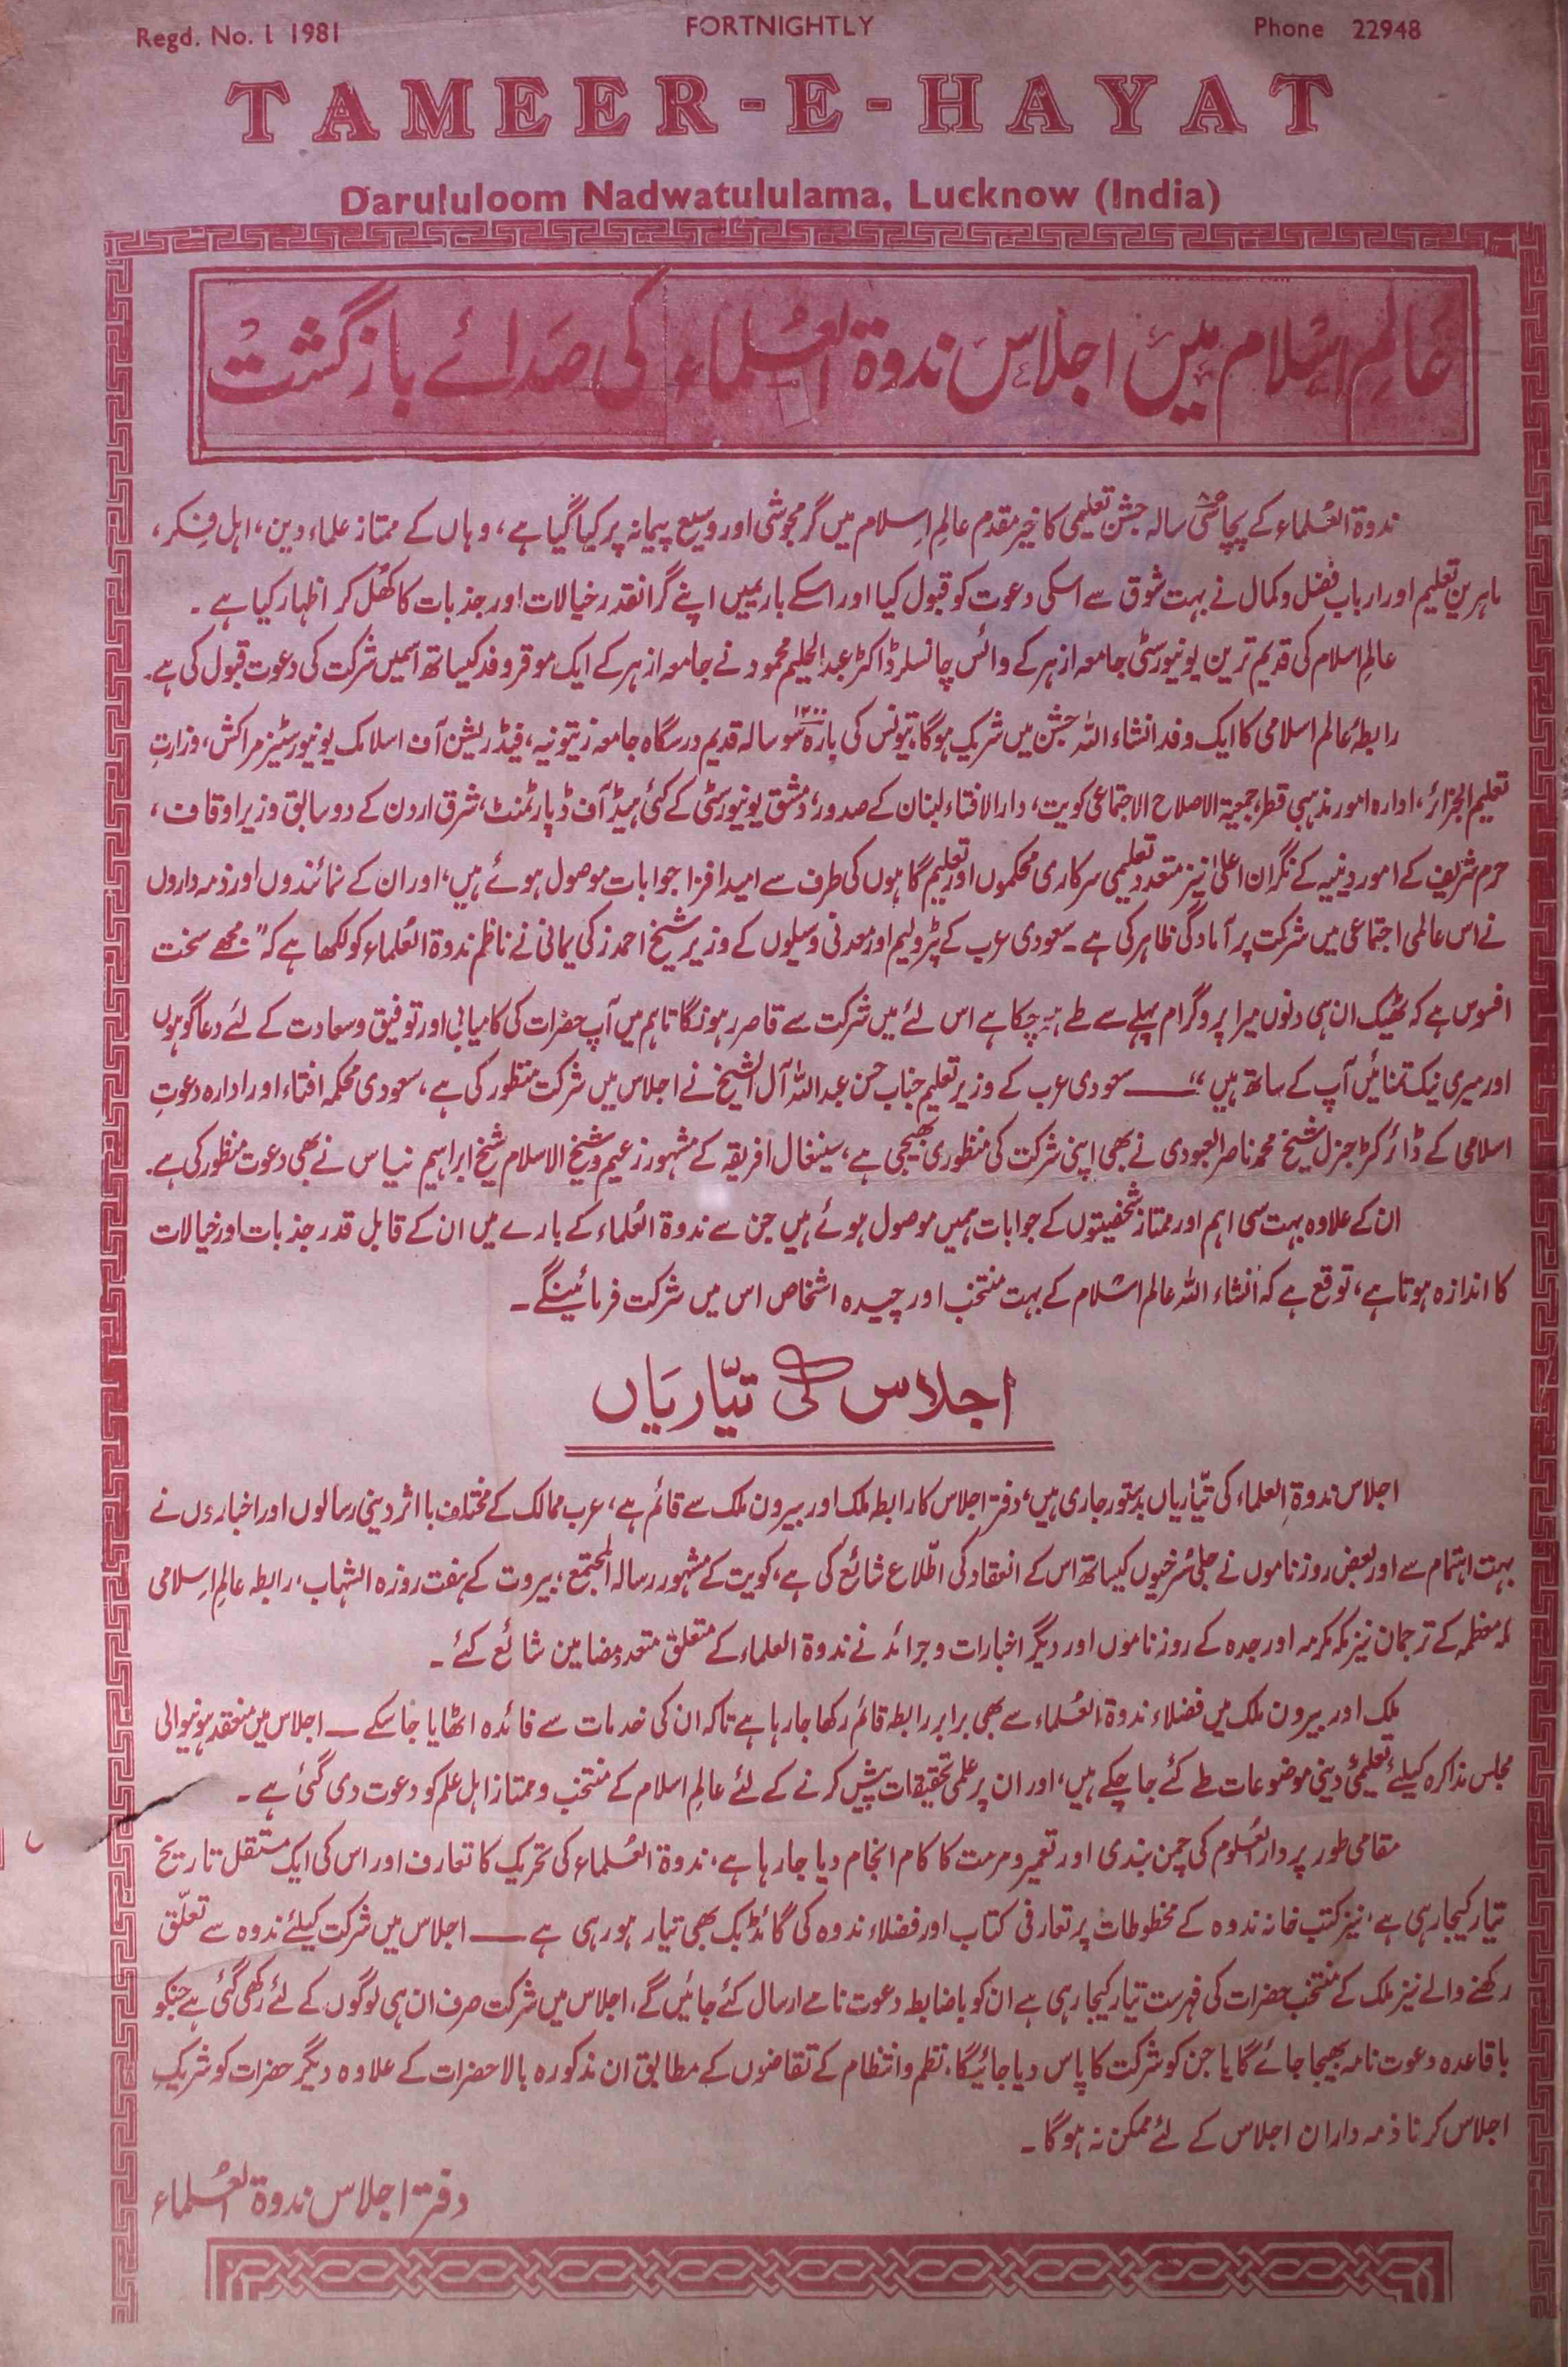 Regd. No. L 1981
FORTNIGHTLY
Phone 22948
TAMEER-E-HAYAT
Darululoom Nadwatululama, Lucknow (India)
عالمِ اسلام میں اجلاس ندوۃ العُلماء کی صدائے بازگشت
ندوۃ العُلماء کے پچاسی سالہ جشن تعلیمی کا خیر مقدم عالمِ اِسلام میں گرمجوشی اور وسیع پیمانہ پر کیا گیا ہے، وہاں کے ممتاز علماء دین، اہل فِکر،
ماہرین تعلیم اور ارباب فضل وکمال نے بہت شوق سے اسکی دعوت کو قبول کیا اور اسکے باریمیں اپنے گرانقدر خیالات اور جذبات کا کھُل کر اظہار کیا ہے۔
عالمِ اسلام کی قدیم ترین یونیورسٹی جامعہ ازہر کے وائس چانسلر ڈاکٹر عبدالحلیم محمود نے جامعہ ازہر کے ایک موقر وفد کیساتھ اسمیں شرکت کی دعوت قبول کی ہے۔
رابطۂ عالم اسلامی کا ایک وفد انشاء اللہ جشن میں شریک ہوگا، تیونس کی بارہ ۱۲۰۰ سو سالہ قدیم درسگاہ جامعہ زیتونیہ، فیڈریشن آف اسلامک یونیورسٹیز مراکش، وزارتِ
تعلیم الجزائر، ادارہ امور مذہبی قطر، جمعیۃ الاصلاح الاجتماعی کویت، دارالافتاء لبنان کے صدور، دمشق یونیورسٹی کے کئی ہیڈ آف ڈپارٹمنٹ، شرق اردن کے دو سابق وزیر اوقاف،
حرم شریف کے امور دینیہ کے نگران اعلیٰ نیز متعدد تعلیمی سرکاری محکموں اور تعلیم گاہوں کی طرف سے امید افزا جوابات موصول ہوئے ہیں، اور ان کے نمائندوں اور ذمہ داروں
نے اس عالمی اجتماعی میں شرکت پر آمادگی ظاہر کی ہے ۔ سعودی عرب کے پٹرولیم اور معدنی وسیلوں کے وزیر شیخ احمد زکی یمانی نے ناظم ندوۃ العُلماء کو لکھا ہے کہ "مجھے سخت
افسوس ہے کہ ٹھیک ان ہی دنوں میرا پروگرام پہلے سے طے ہو چکا ہے اس لئے میں شرکت سے قاصر رہونگا تاہم میں آپ حضرات کی کامیابی اور توفیق وسعادت کے لئے دعا گو ہوں
اور میری نیک تمنائیں آپ کے ساتھ ہیں" ــــ سعودی عرب کے وزیر تعلیم جناب حسن عبداللہ آل الشیخ نے اجلاس میں شرکت منظور کی ہے، سعودی محکمہ افتاء اور ادارہ دعوتِ
اسلامی کے ڈائرکٹر جنرل شیخ محمد ناصر العبودی نے بھی اپنی شرکت کی منظوری بھیجی ہے، سینغال افریقہ کے مشہور زعیم وشیخ الاسلام شیخ ابراہیم نیاس نے بھی دعوت منظور کی ہے۔
ان کے علاوہ بہت سی اہم اور ممتاز شخصیتوں کے جوابات ہمیں موصول ہوئے ہیں جن سے ندوۃ العُلماء کے بارے میں ان کے قابل قدر جذبات اور خیالات
کا اندازہ ہوتا ہے، توقع ہے کہ انشاء اللہ عالم اسلام کے بہت منتخب اور چیدہ اشخاص اس میں شرکت فرمائینگے ۔
اجلاس کی تیّاریاں
اجلاس ندوۃ العلماء کی تیّاریاں بدستور جاری ہیں، دفتر اجلاس کا رابطہ ملک اور بیرون ملک سے قائم ہے، عرب ممالک کے مختلف با اثر دینی رسالوں اور اخباروں نے
بہت اہتمام سے اور بعض روزناموں نے جلی سُرخیوں کیساتھ اس کے انعقاد کی اطّلاع شائع کی ہے، کویت کے مشہور رسالہ المجتمع، بیروت کے ہفت روزہ الشہاب، رابطہ عالمِ اِسلامی
مکہ معظمہ کے ترجمان نیز مکہ مکرمہ اور جدہ کے روزناموں اور دیگر اخبارات وجرائد نے ندوۃ العلماء کے متعلق متعدد مضامین شائع کئے ۔
ملک اور بیرون ملک میں فضلاء ندوۃ العُلماء سے بھی برابر رابطہ قائم رکھا جا رہا ہے تاکہ ان کی خدمات سے فائدہ اٹھایا جا سکے ــ اجلاس میں منعقد ہونیوالی
مجلس مذاکرہ کیلئے تعلیمی دینی موضوعات طے کئے جا چکے ہیں، اور ان پر علمی تحقیقات پیش کرنے کے لئے عالمِ اسلام کے منتخب وممتاز اہل علم کو دعوت دی گئی ہے ۔
مقامی طور پر دارالعُلوم کی چمن بندی اور تعمیر و مرمت کا کام انجام دیا جا رہا ہے، ندوۃ العُلماء کی تحریک کا تعارف اور اس کی ایک مستقل تاریخ
تیار کیجا رہی ہے، نیز کتب خانہ ندوہ کے مخطوطات پر تعارفی کتاب اور فضلاء ندوہ کی گائڈ بک بھی تیار ہو رہی ہے ــــ اجلاس میں شرکت کیلئے ندوہ سے تعلّق
رکھنے والے نیز ملک کے منتخب حضرات کی فہرست تیار کیجا رہی ہے ان کو باضابطہ دعوت نامے ارسال کئے جائیں گے، اجلاس میں شرکت صرف ان ہی لوگوں کے لئے رکھی گئی ہے جنکو
باقاعدہ دعوت نامہ بھیجا جائے گا یا جن کو شرکت کا پاس دیا جائیگا، نظم وانتظام کے تقاضوں کے مطابق ان مذکورہ بالا حضرات کے علاوہ دیگر حضرات کو شریکِ
اجلاس کرنا ذمہ داران اجلاس کے لئے ممکن نہ ہوگا ۔
دفتر اجلاس ندوۃ العُلماء